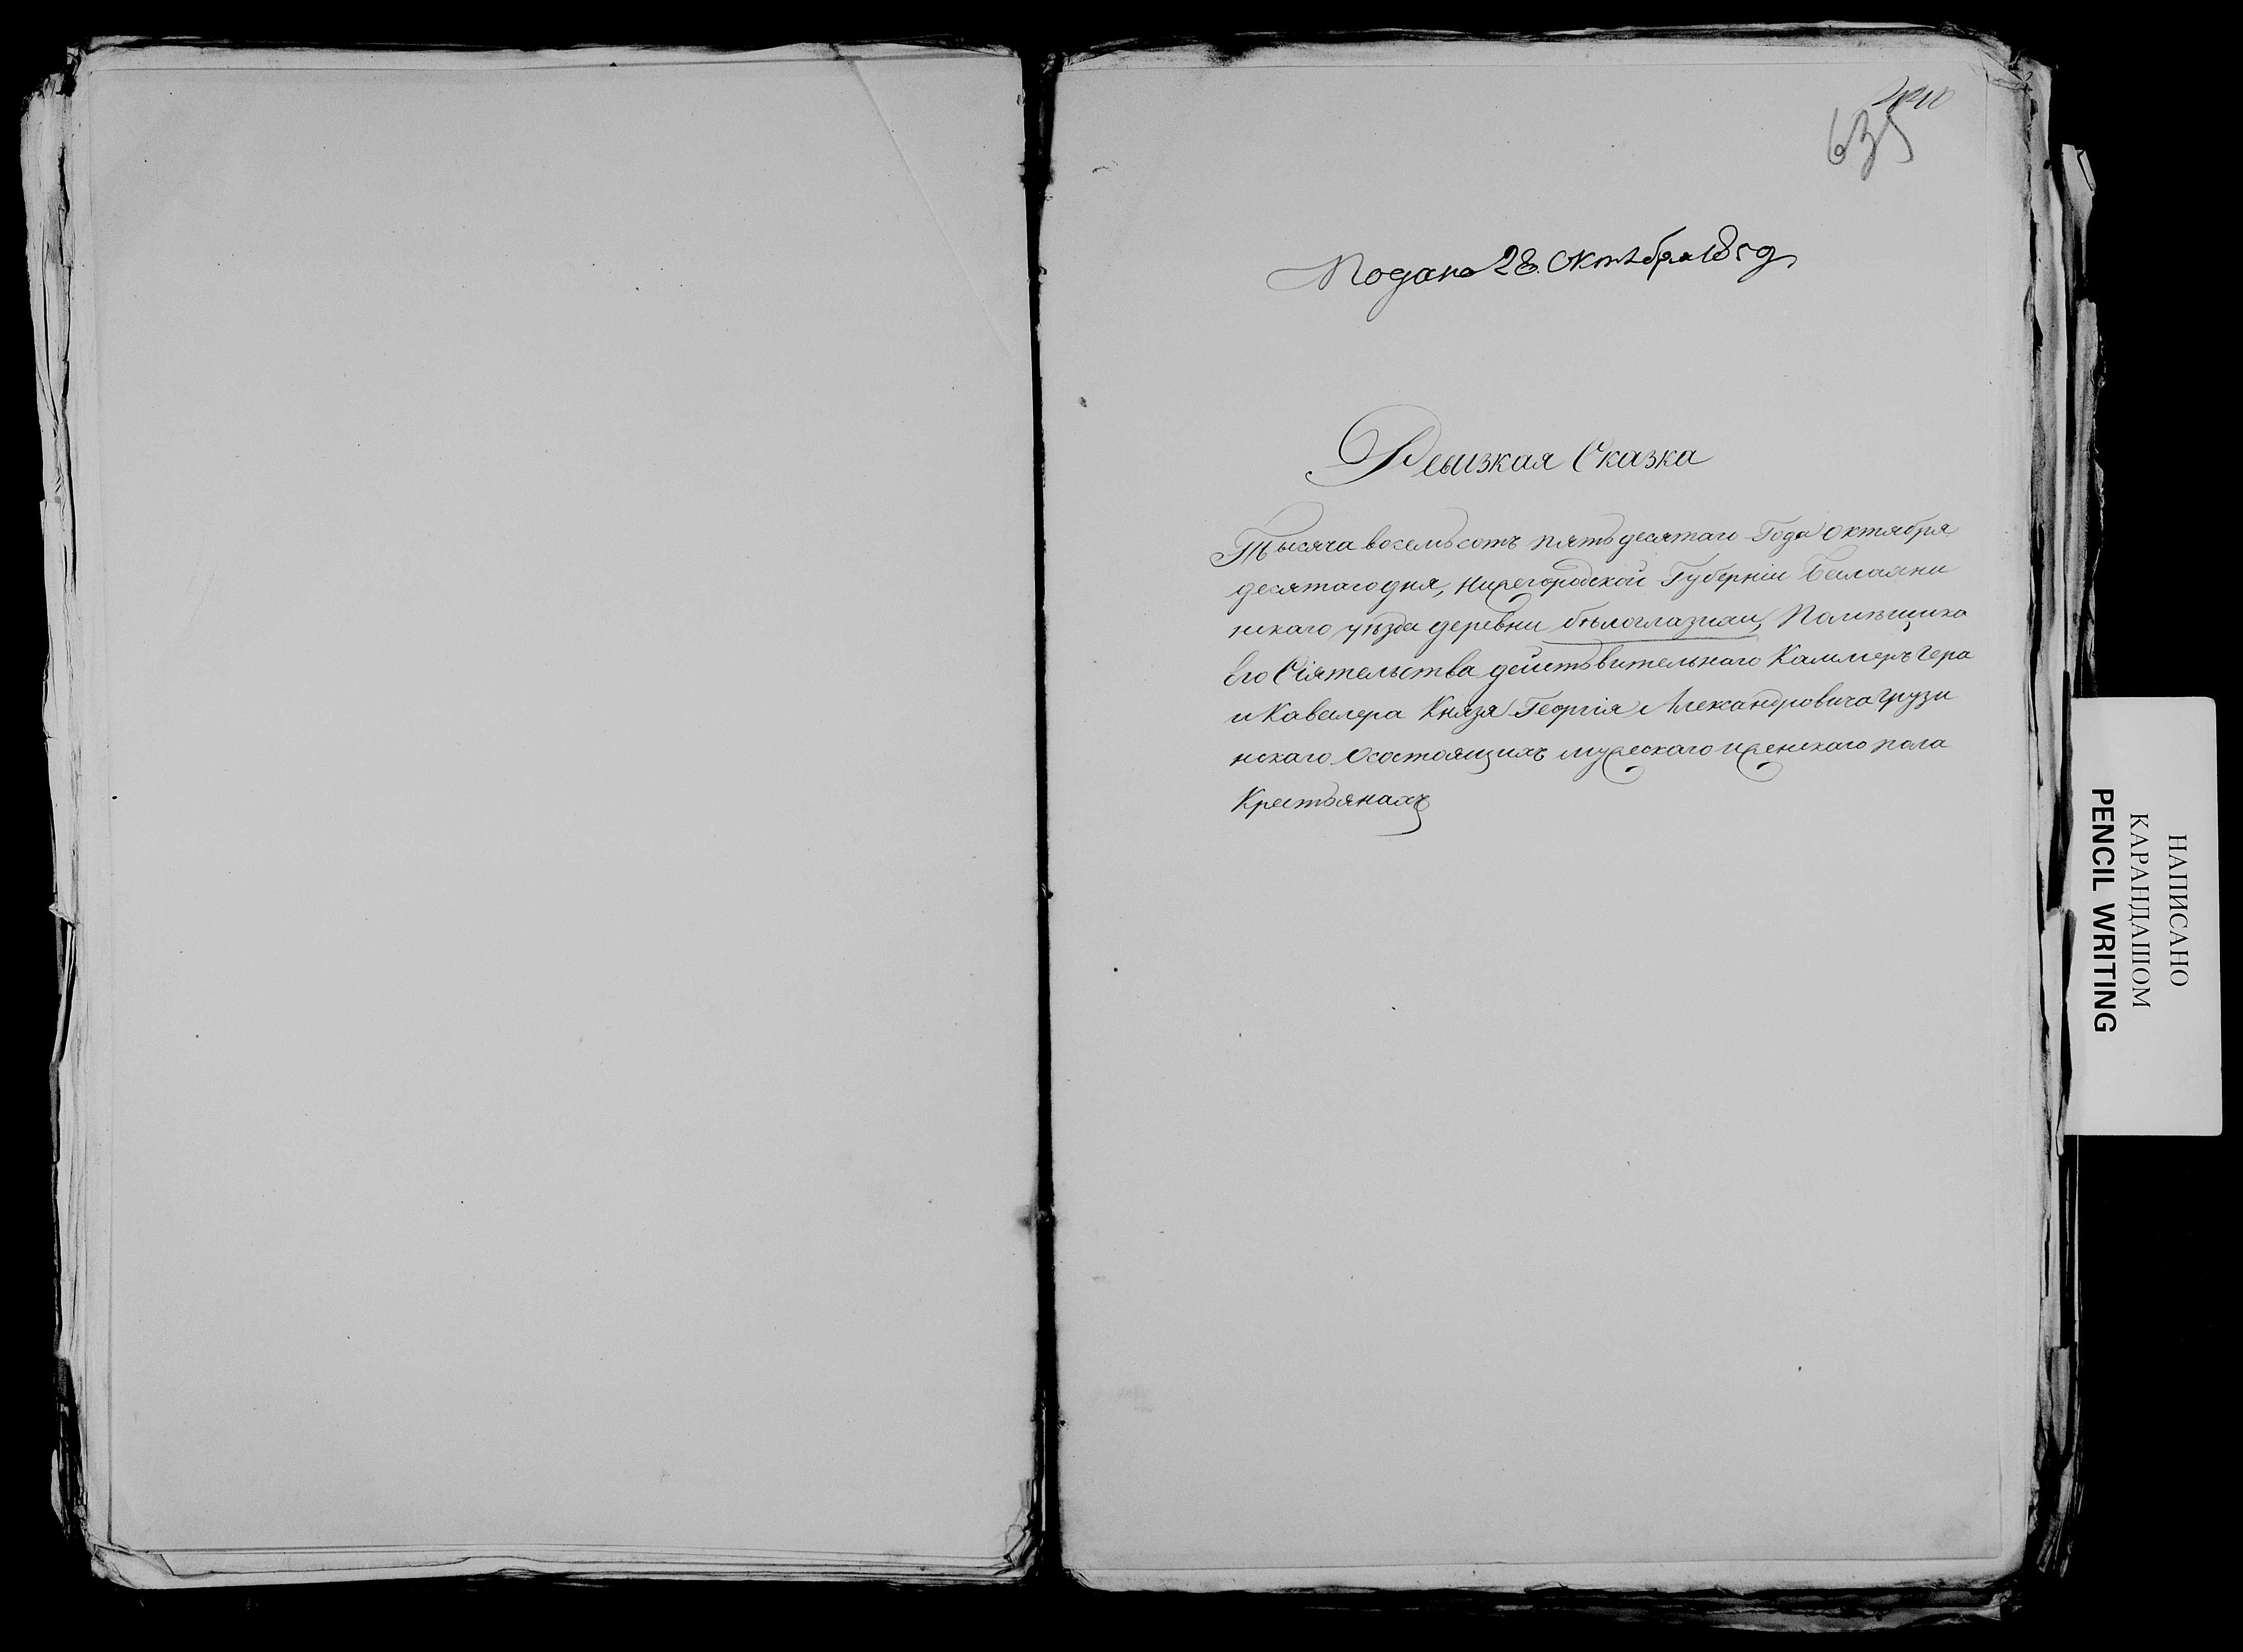 635
Подана 28. Октября 185 г.
Ревизкая Сказка
Тысяча восемьсотъ пятьдесятаго Года Октября
десятаго дня, Нижегородской Губерніи Балахни
нскаго уѣзда деревни бѣлоглазихи, Помѣщика
Его Сіятельства действительнаго Каммеръгера
и Кавалера Князя Георгія Александровича Грузи
нскаго О состоящихъ мужескаго и женскаго пола
Крестьянахъ
НАПИСАНО
КАРАНДАШОМ
PENCIL WRITING